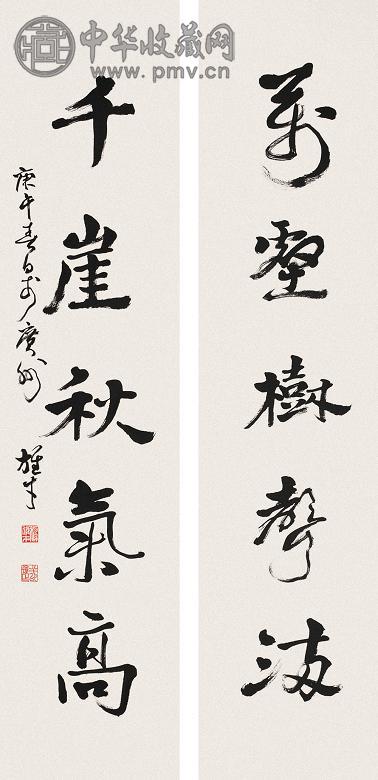 中华收藏网
www.pmv.cn
萬壑樹聲滿
千崖秋氣高
庚午春日於廣州
雄才